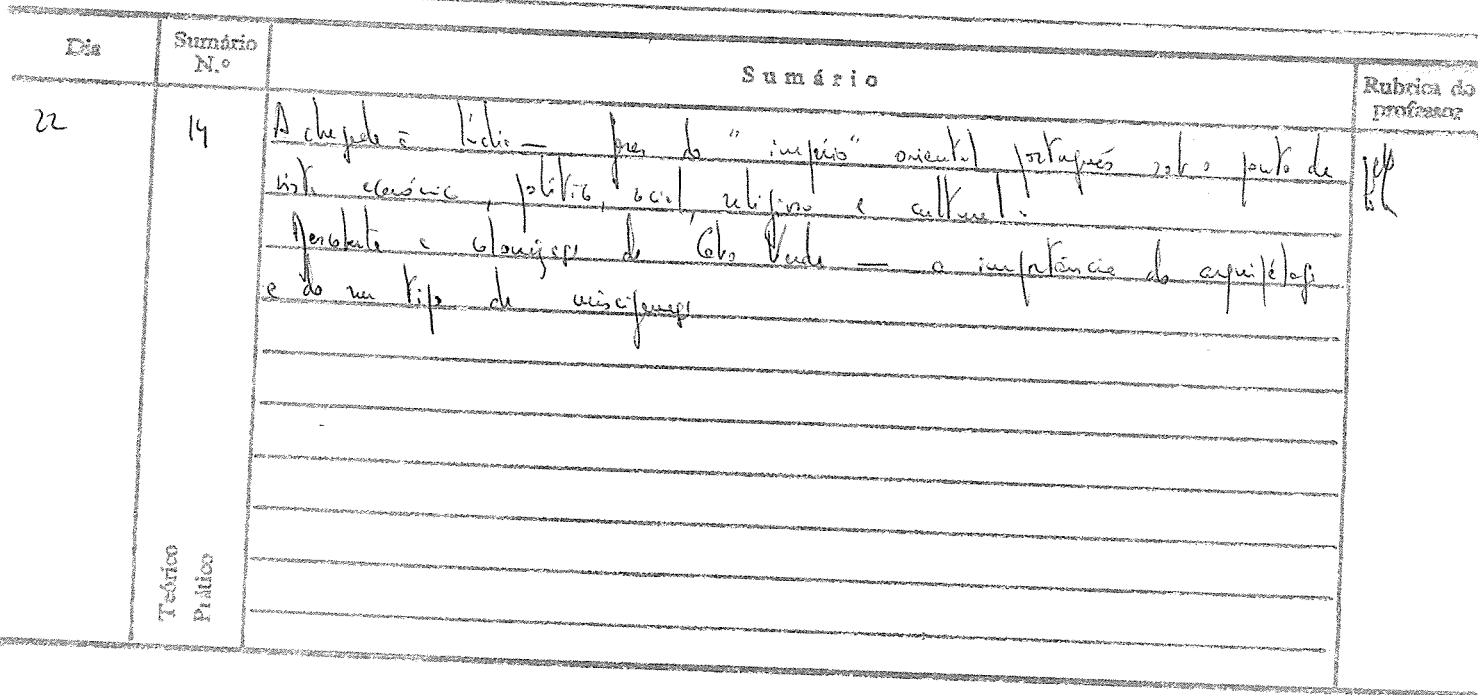 Dia Sumário N.º Sumário Rubrica do professor
22 14 A chegada à Índia — do "império" oriental português sob o ponto de
vista económico, político, social, religioso e cultural.
Descoberta e colonização de Cabo Verde — a importância do arquipélago
e do seu tipo de miscigenação
Teórico
Prático